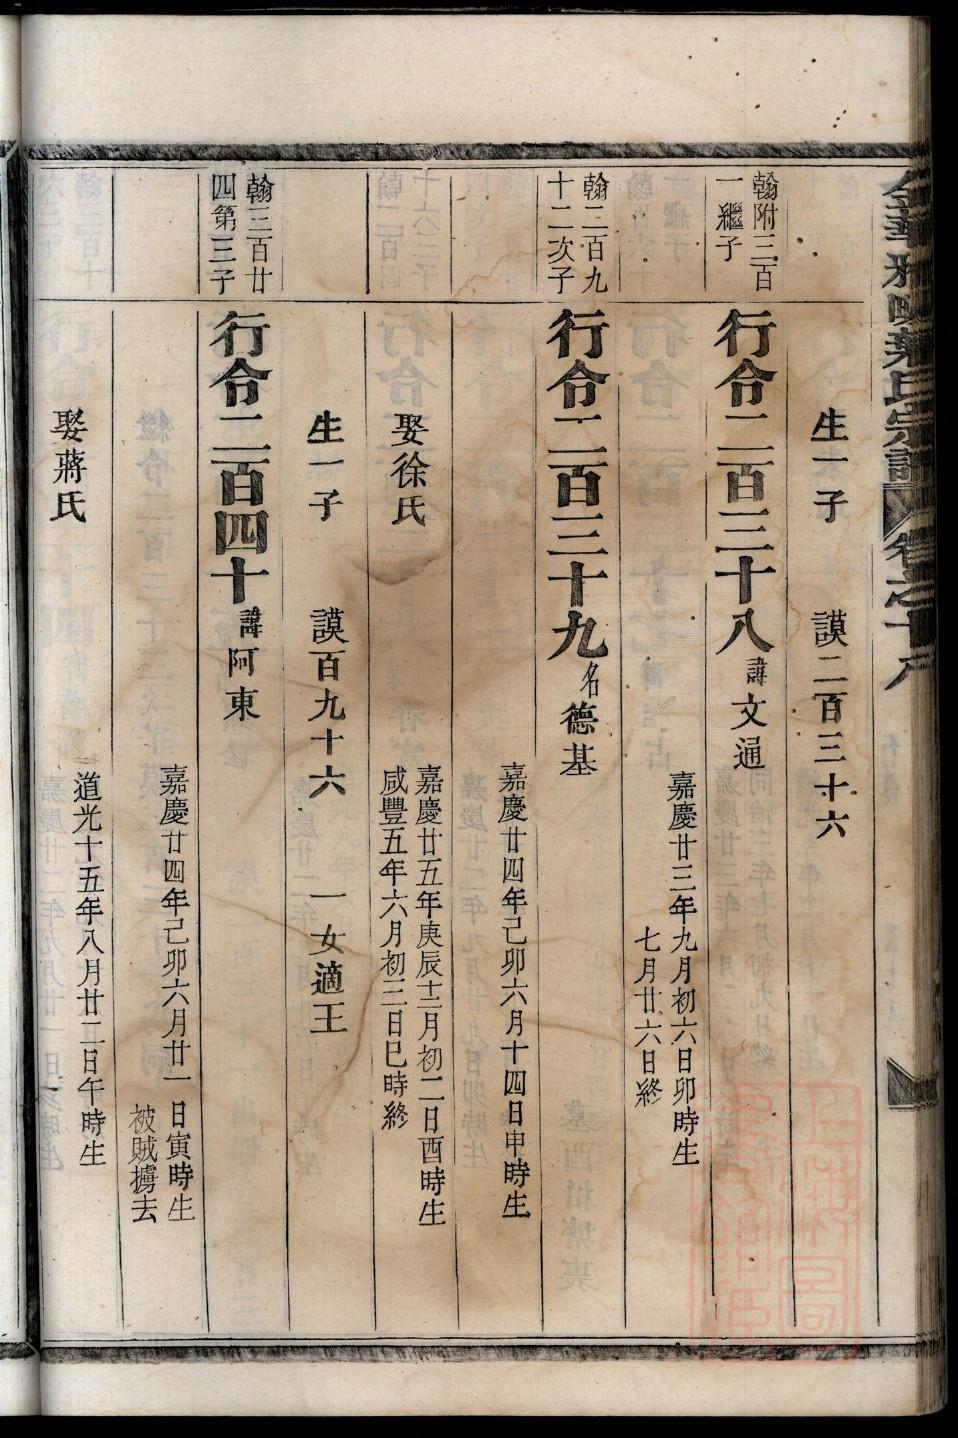 生一子 謨二百三十六
翰附三百
一繼子
行令二百三十八諱文通
嘉慶廿三年九月初六日卯時生
七月廿六日終
翰二百九
十二次子
行令二百三十九名德基
嘉慶廿四年己卯六月十四日申時生
娶徐氏
嘉慶廿五年庚辰十二月初二日酉時生
咸豐五年六月初三日巳時終
生一子 謨百九十六 一女適王
翰三百廿
四第三子
行令二百四十諱阿東
嘉慶廿四年己卯六月廿一日寅時生
被賊擄去
娶蔣氏
道光十五年八月廿二日午時生